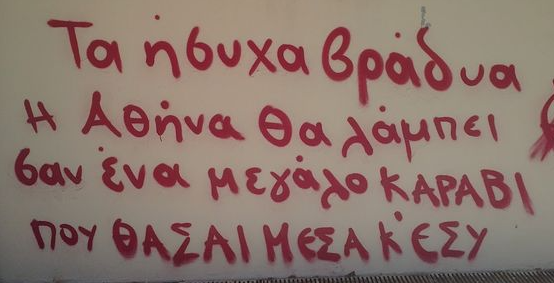 Τα ήσυχα βράδυα
Η Αθήνα θα λάμπει
σαν ένα μεγάλο ΚΑΡΑΒΙ
που ΘΑΣΑΙ ΜΕΣΑ Κ' ΕΣΥ